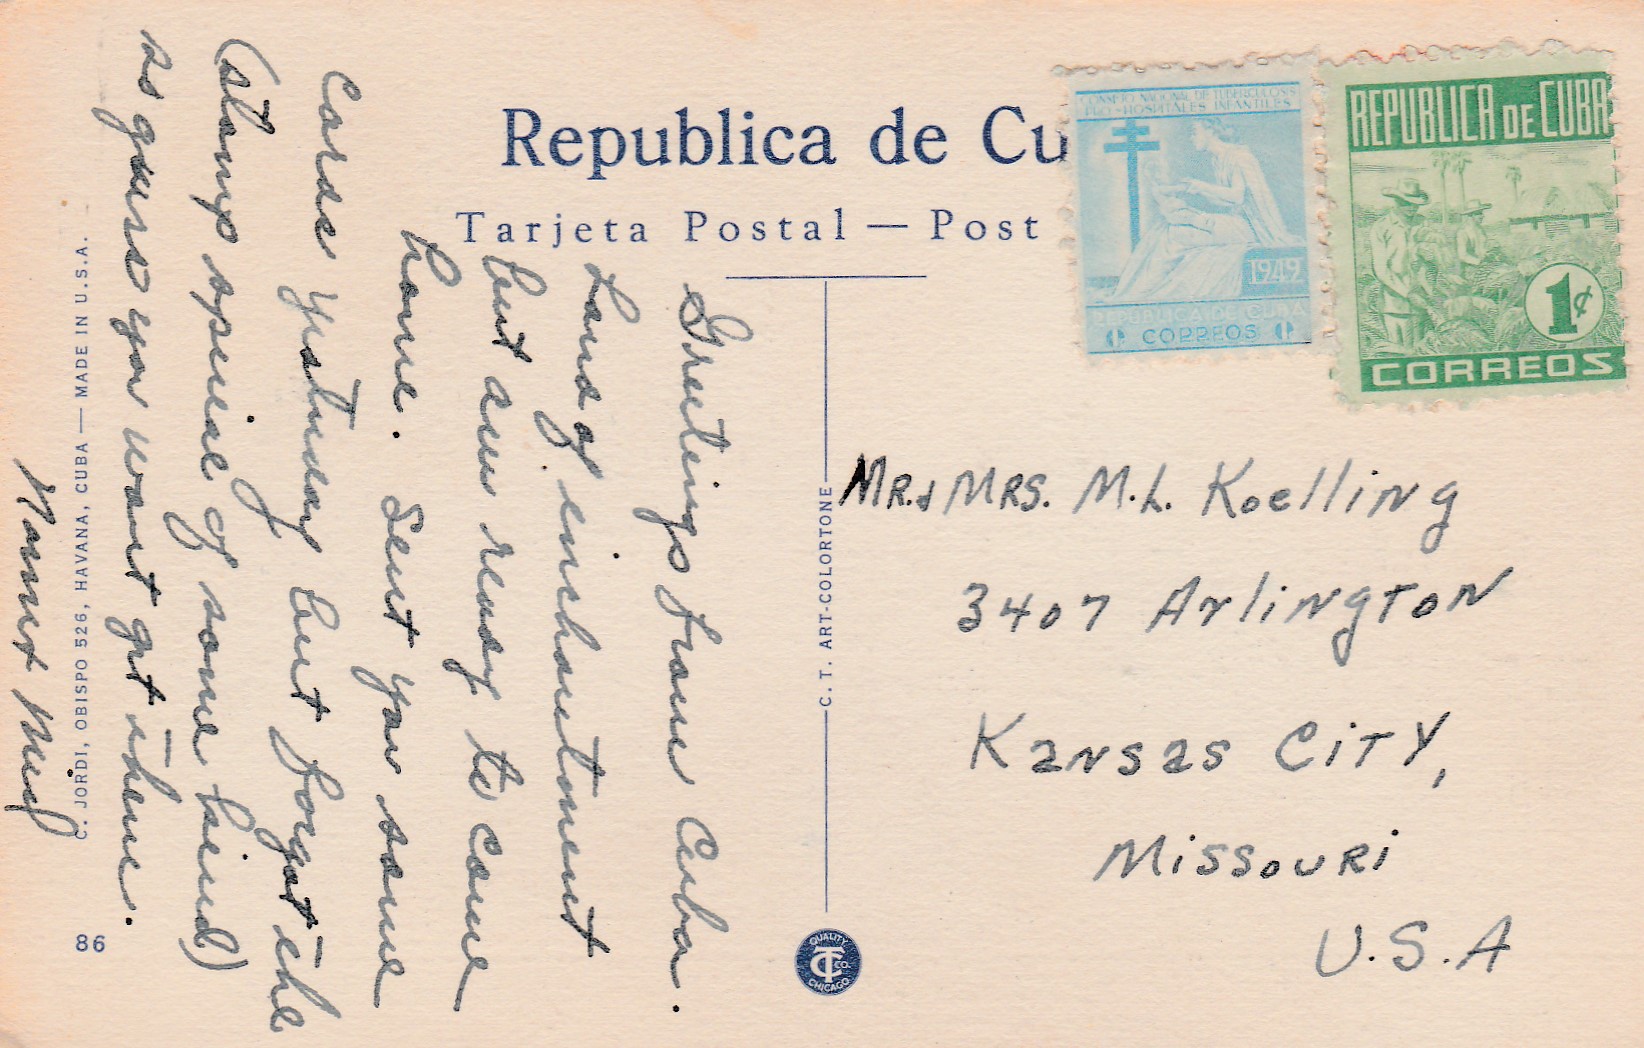 Republica de Cu
Tarjeta Postal — Post
CONSEJO NACIONAL DE TUBERCULOSIS
PRO-HOSPITALES INFANTILES
1949
REPUBLICA DE CUBA
CORREOS
REPUBLICA DE CUBA
1¢
CORREOS
Greetings from Cuba.
Land of enchantment
but am ready to come
home. Sent you some
cards yesterday but forgot the
(stamp special of some kind)
so guess you wont get them.
MR. & MRS. M. L. Koelling
3407 Arlington
Kansas City,
Missouri
U.S.A
C. JORDI, OBISPO 526, HAVANA, CUBA — MADE IN U.S.A.
86
C. T. ART-COLORTONE
QUALITY
CT CO.
CHICAGO